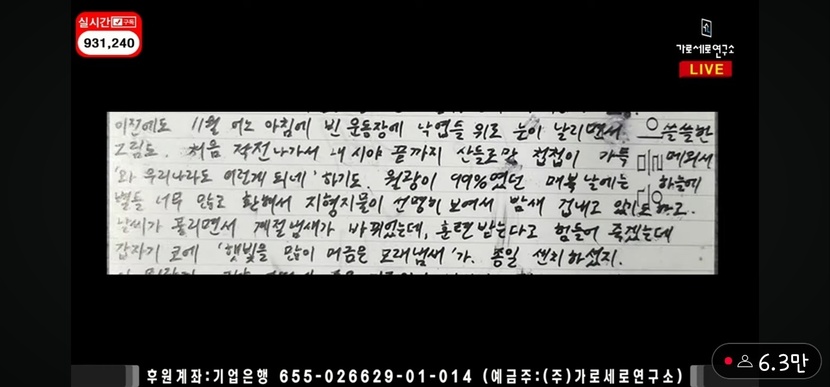 실시간 구독
931,240
가로세로연구소
LIVE
이전에도 11월 어느 아침에 빈 운동장에 낙엽들 위로 눈이 날리면서. 으쓸쓸한
그림도. 처음 작전나가서 내 시야 끝까지 산들로만 첩첩이 가득 메워서
'와 우리나라도 이런게 되네' 하기도. 월광이 99%였던 매복 날에는 하늘에
별들 너무 많고 환해서 지형지물이 선명히 보여서 밤새 겁내고 있기도하고.
날씨가 풀리면서 계절냄새가 바뀌었는데, 훈련받는다고 힘들어 죽겠는데
갑자기 코에 '햇빛을 많이 머금은 모래냄새'가. 종일 센치하셨지.
6.3만
후원계좌:기업은행 655-026629-01-014 (예금주:(주)가로세로연구소)